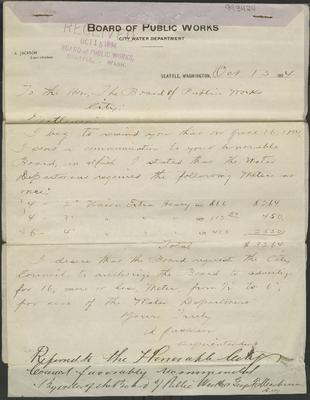 993424
BOARD OF PUBLIC WORKS
CITY WATER DEPARTMENT
A. JACKSON
Superintendent
OCT 15 1894
BOARD OF PUBLIC WORKS,
SEATTLE, WASH.
SEATTLE, WASHINGTON, Oct 13 1894
To the Hon. The Board of Public Works
City.
Gentlemen
I beg to remind you that on June 16, 1894
I sent a communication to your Honorable
Board, in which I stated that the Water
Department required the following Meters at
once:
4 - 2" Union Extra Heavy @ $66 $264
4 3" " " @ 112 50 450
6 - 6" " @ 425 2550
Total $3264
I desire that the Board request the City
Council to authorize the Board to advertise
for 16, more or less, Meters, from to 6",
for use of the Water Department
Yours Truly
A Jackson
Superintendent
Referred to the Honorable City
Council favorably recommended
By order of the Board of Public Works